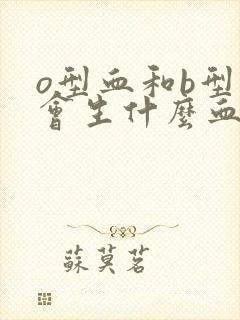 o型血和b型
會生什麼血
蘇莫茗